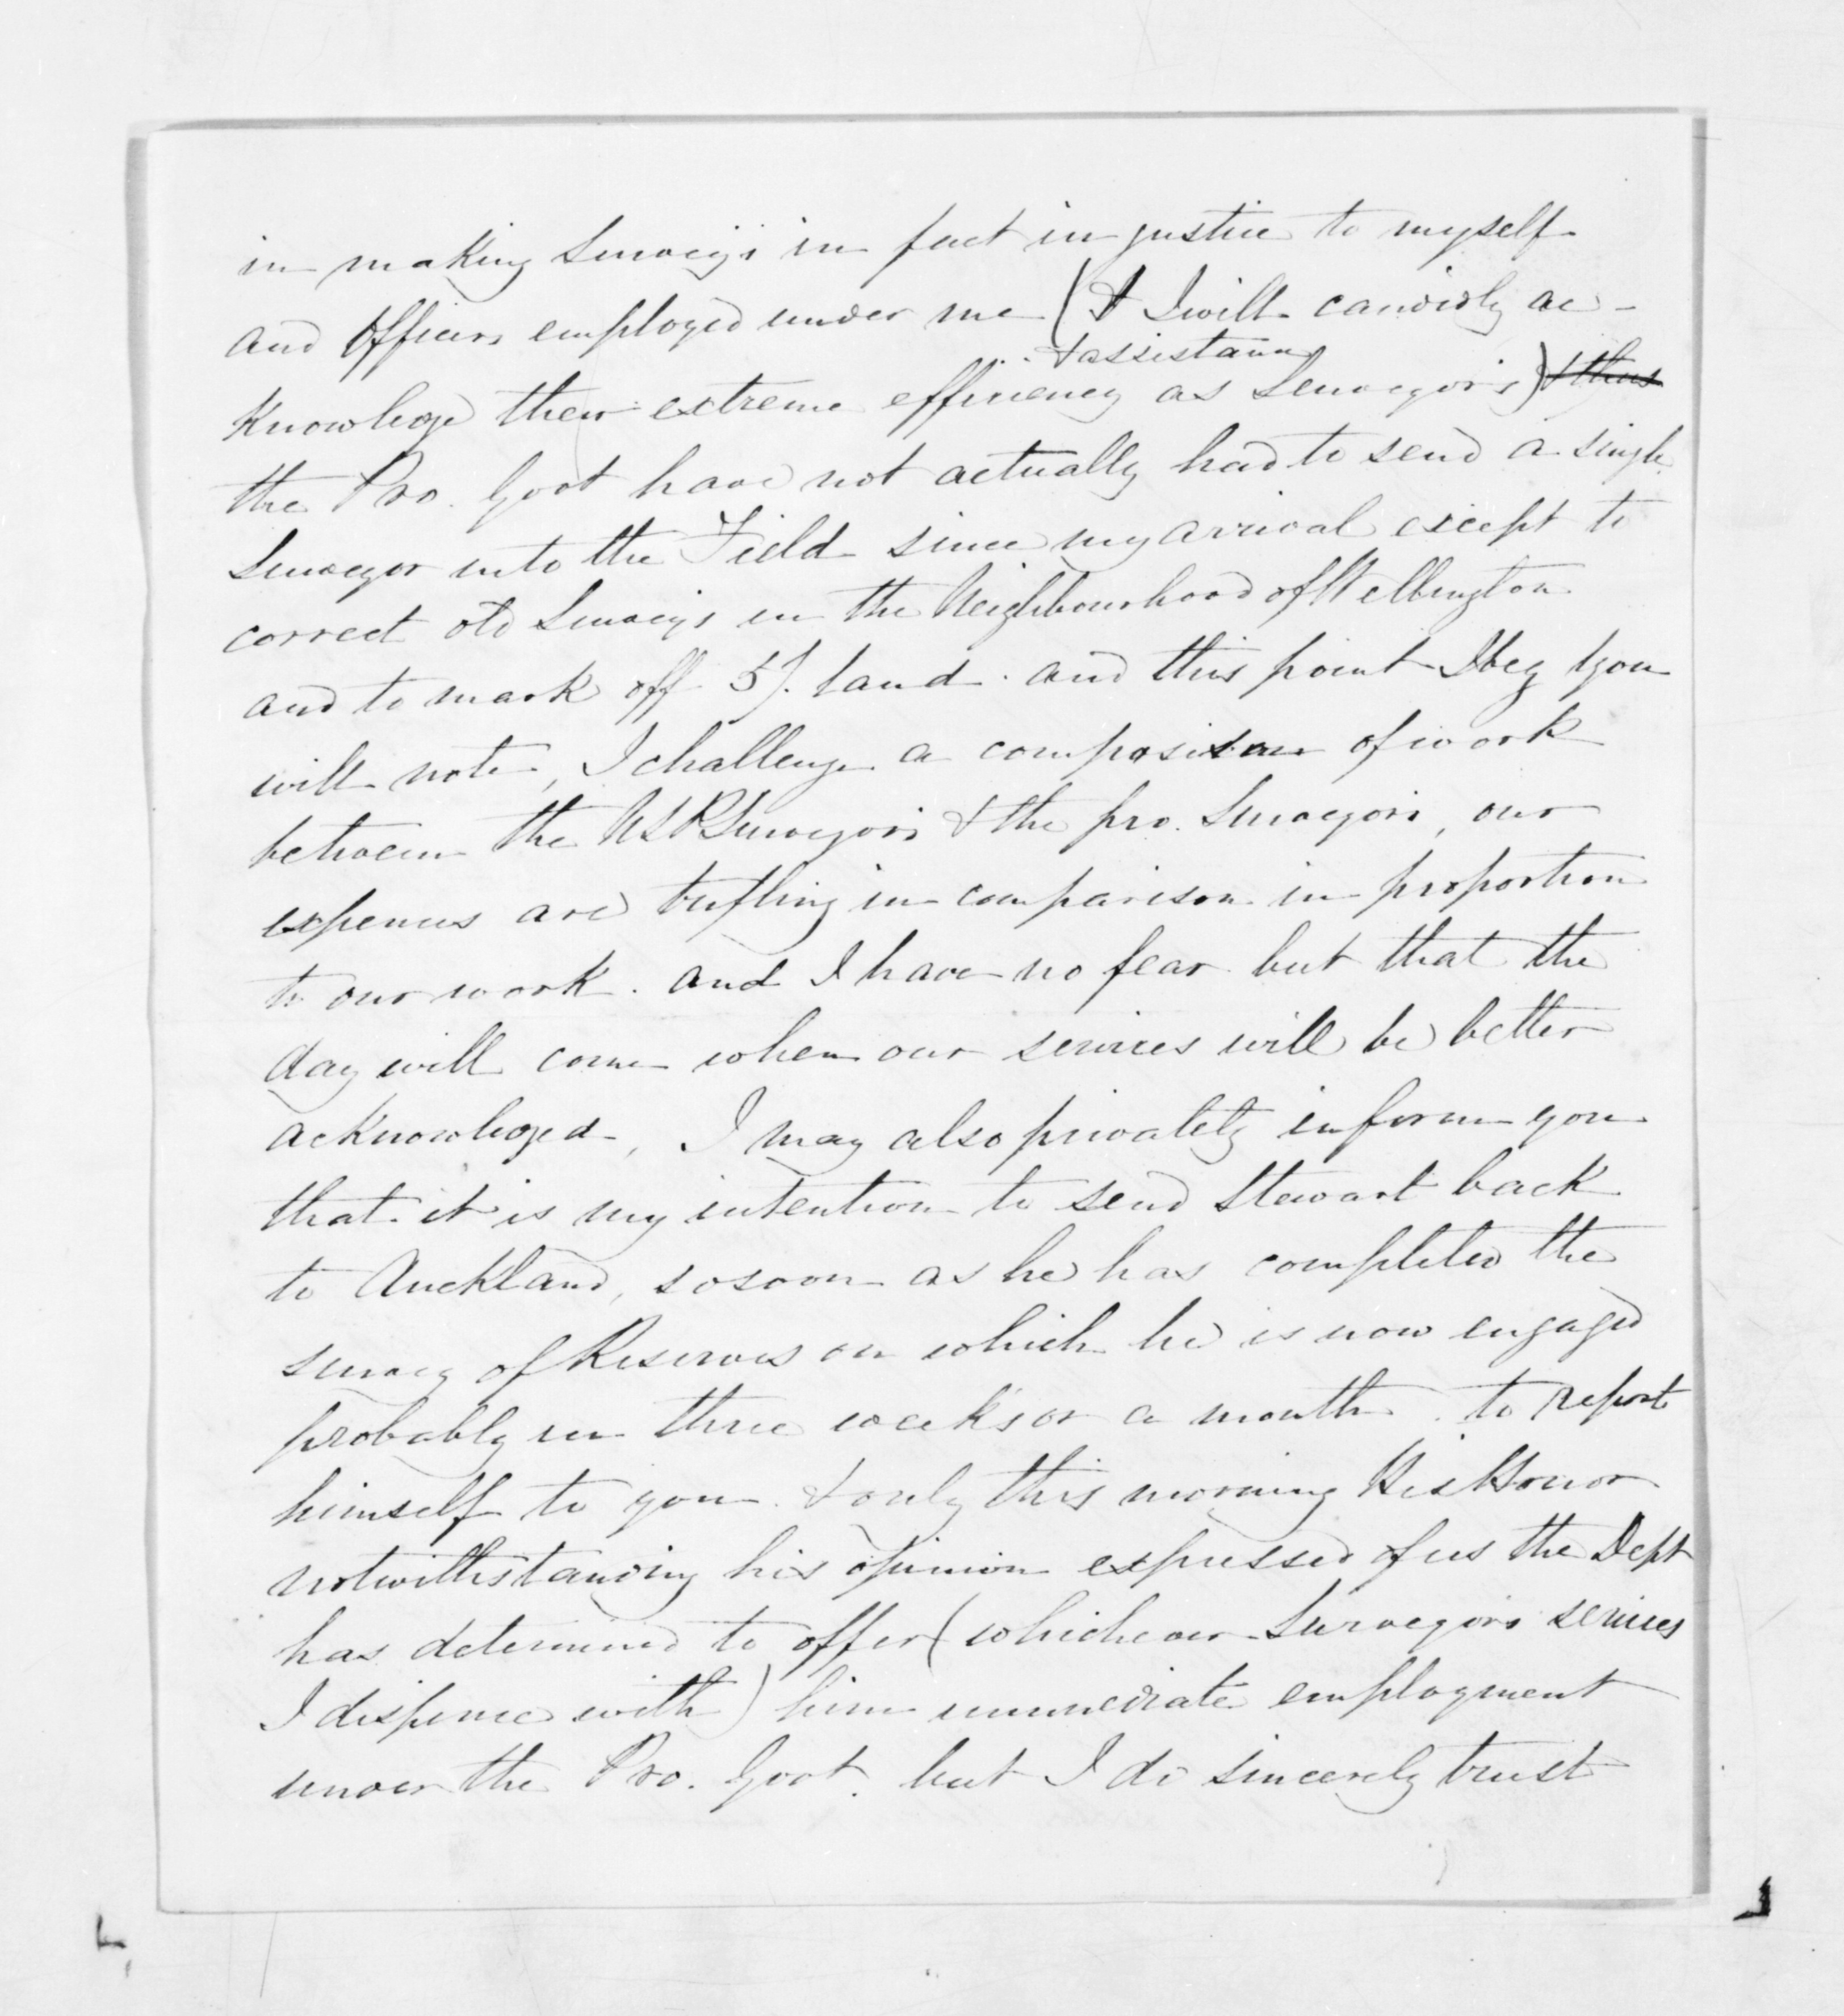 in making Surveys in fact in justice to myself
and Officers employed under me (& I will candidly ac-
& assistance
knowledge their extreme efficiency as Surveyors) & thus
the Pro. Govt have not actually had to send a single
Surveyor into the Field since my arrival except to
correct old Surveys in the Neighbourhood of Wellington
and to mark off 5/. land. and this point I beg you
will note, I challenge a comparison of work
between the Surveyors & the pro. Surveyors, our
expenses are trifling in comparison in proportion
to our work. and I have no fear but that the
day will come when our services will be better
acknowledged, I may also privately inform you
that it is my intention to send Stewart back
to Auckland, so soon as he has completed the
survey of Reserves on which he is now engaged
probably in three weeks or a month. to report
himself to you. & only this morning His Honor
notwithstanding his opinion expressed of us the Dept
has determined to offer (whichever Surveyors services
I dispense with) him immediate employment
under the Pro. Govt. but I do sincerely trust